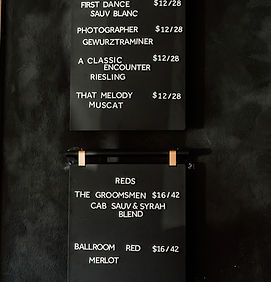 FIRST DANCE $12/28
SAUV BLANC
PHOTOGRAPHER $12/28
GEWURZTRAMINER
A CLASSIC $12/28
ENCOUNTER
RIESLING
THAT MELODY $12/28
MUSCAT
REDS
THE GROOMSMEN $16/42
CAB SAUV & SYRAH
BLEND
BALLROOM RED $16/42
MERLOT